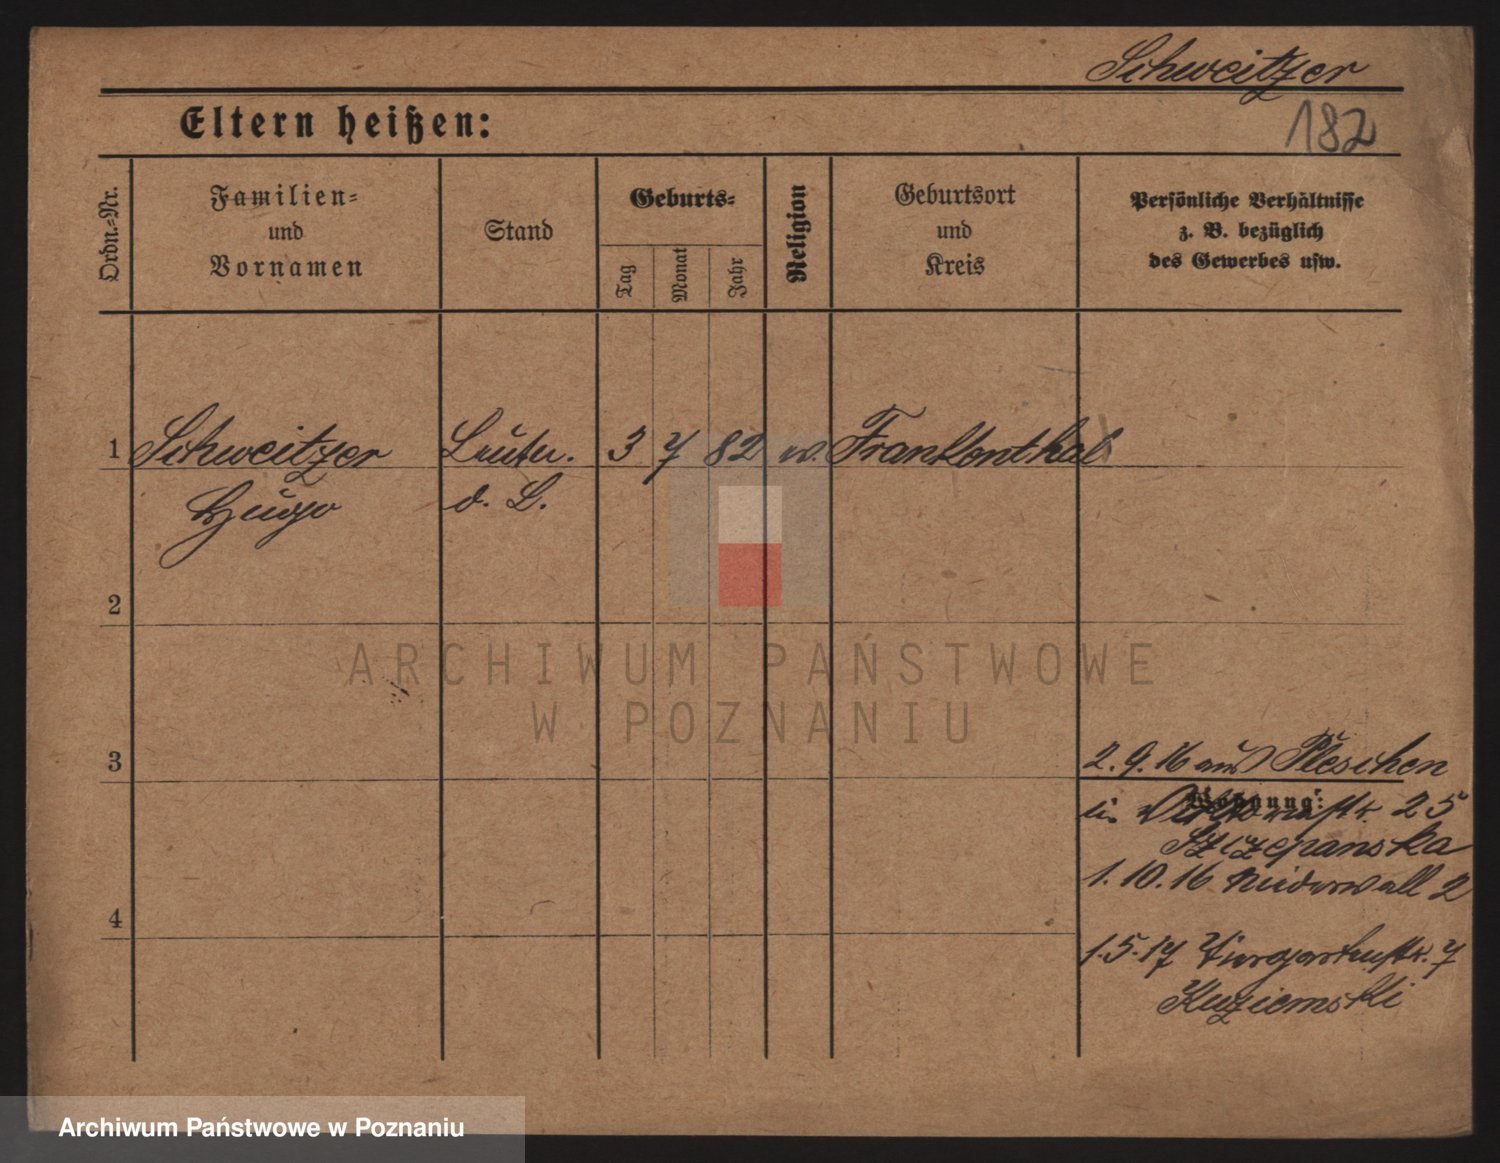 Schweitzer
182
Eltern heißen:
Ordn.-Nr.
Familien-
und
Vornamen
Stand
Geburts-
Tag
Monat
Jahr
Religion
Geburtsort
und
Kreis
Persönliche Verhältnisse
z. B. bezüglich
des Gewerbes usw.
1 Schweitzer Leutn. 3 7 82 ev. Frankenthal
Hugo d. L.
2
ARCHIWUM PAŃSTWOWE
W POZNANIU
3
2.9.16 aus Pleschen
Wohnung:
in Viktoriastr. 25
Szczepanska
1.10.16 Niederwall 2
4
1.5.17 Tiergartenstr. 7
Kuziemski
Archiwum Państwowe w Poznaniu